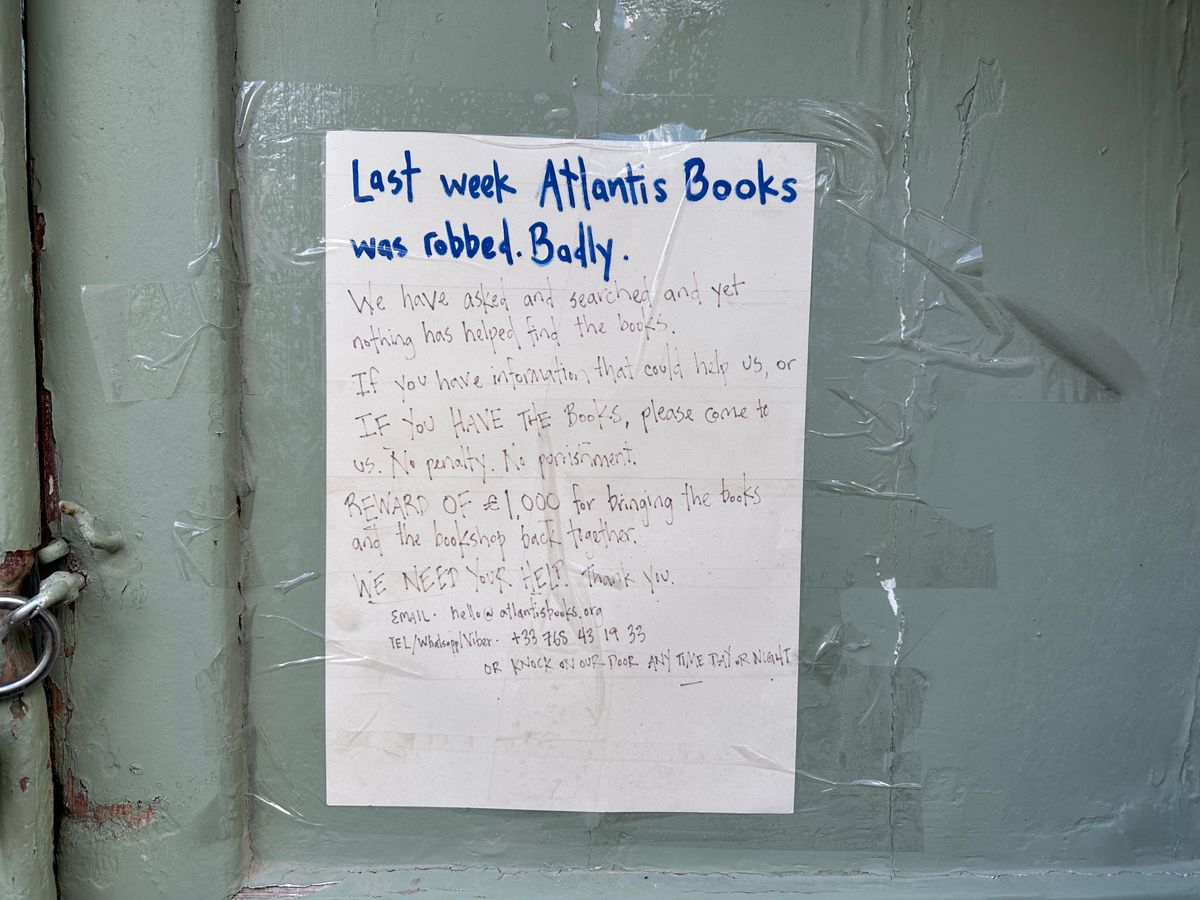 Last week Atlantis Books
was robbed. Badly.
We have asked and searched and yet
nothing has helped find the books.
If you have information that could help us, or
IF YOU HAVE THE BOOKS, please come to
us. No penalty. No punishment.
REWARD OF €1,000 for bringing the books
and the bookshop back together.
WE NEED YOUR HELP. Thank you.
EMAIL. hello@atlantisbooks.org
TEL/Whatsapp/Viber. +33 768 43 19 33
OR KNOCK ON OUR DOOR ANY TIME DAY OR NIGHT